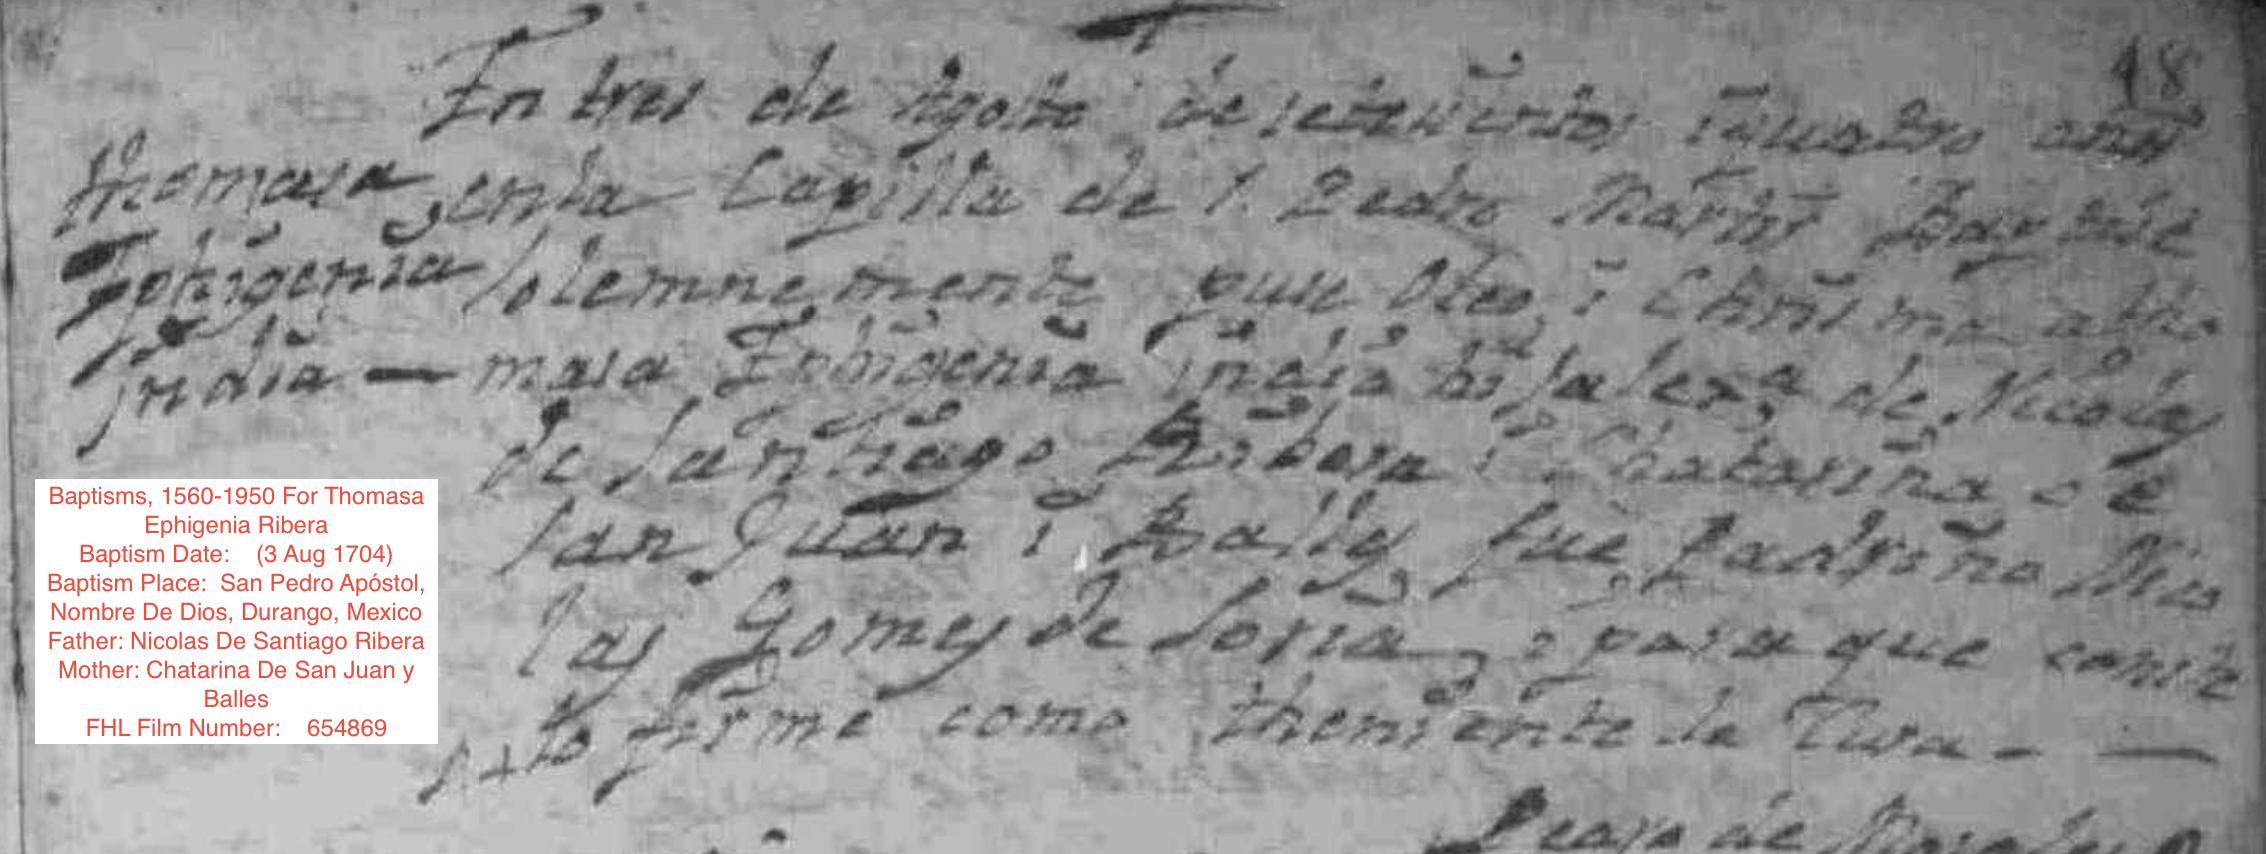 18
En tres de Agosto de setecientos iquatro años
thomasa en la Capilla de S. Pedro Martir Baptise
Ephigenia solemnemente puse Oleo, i Chrisma a tho
india — masa Ephigenia india hija lexma de Nicolas
de Santiago Ribera i Chatarina de
San Juan i Balles fue Padrino Nico
las Gomes de Soria, i para que conste
firme como theniente de Cura — —
Pedro de
Baptisms, 1560-1950 For Thomasa
Ephigenia Ribera
Baptism Date: (3 Aug 1704)
Baptism Place: San Pedro Apóstol,
Nombre De Dios, Durango, Mexico
Father: Nicolas De Santiago Ribera
Mother: Chatarina De San Juan y
Balles
FHL Film Number: 654869